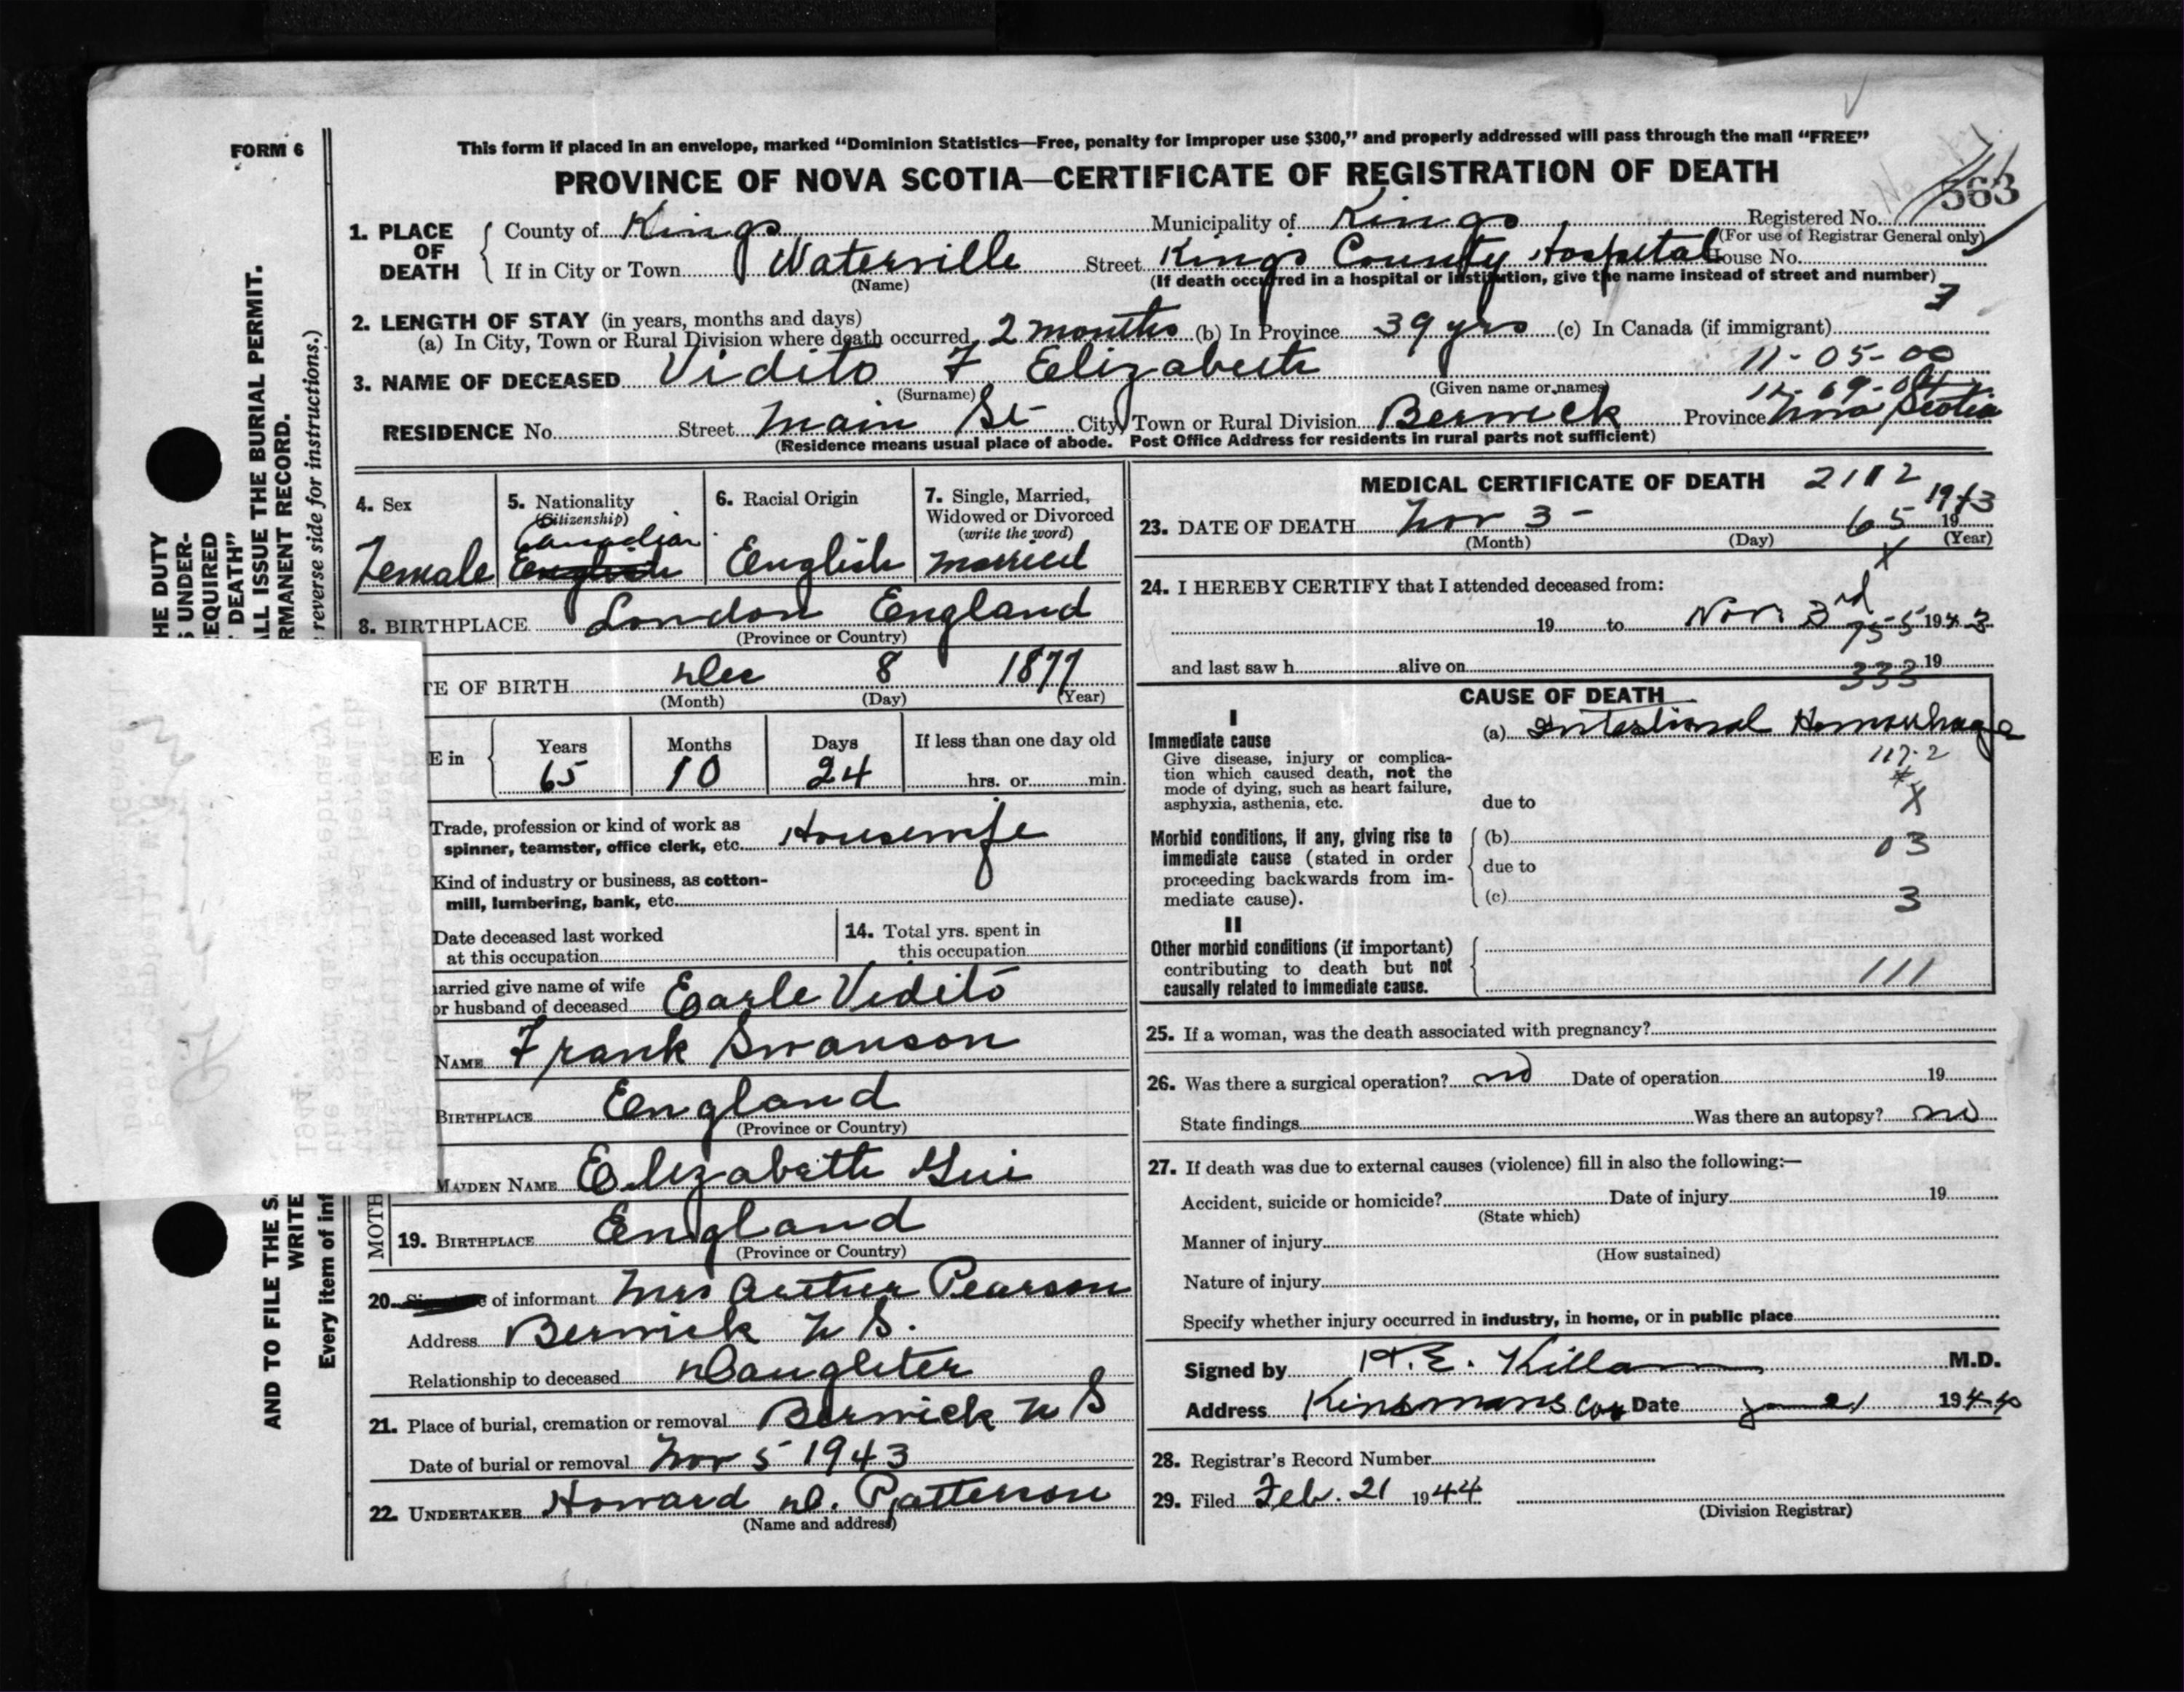 FORM 6
This form if placed in an envelope, marked "Dominion Statistics—Free, penalty for improper use $300," and properly addressed will pass through the mail "FREE"
PROVINCE OF NOVA SCOTIA—CERTIFICATE OF REGISTRATION OF DEATH
563
1. PLACE OF DEATH County of Kings Municipality of Kings Registered No.
(For use of Registrar General only)
If in City or Town Waterville Street Kings County Hospital House No.
(Name) (If death occurred in a hospital or institution, give the name instead of street and number)
3
2. LENGTH OF STAY (in years, months and days)
(a) In City, Town or Rural Division where death occurred 2 months (b) In Province 39 yrs (c) In Canada (if immigrant)
11-05-00
3. NAME OF DECEASED Vidito F Elizabeth
(Surname) (Given name or names)
RESIDENCE No. Street Main St City, Town or Rural Division Berwick Province Nova Scotia
(Residence means usual place of abode. Post Office Address for residents in rural parts not sufficient)
4. Sex Female
5. Nationality (Citizenship) Canadian English
6. Racial Origin English
7. Single, Married, Widowed or Divorced (write the word) Married
8. BIRTHPLACE London England
(Province or Country)
TE OF BIRTH Dec 8 1877
(Month) (Day) (Year)
E in Years 65 Months 10 Days 24 If less than one day old
hrs. or min.
Trade, profession or kind of work as
spinner, teamster, office clerk, etc. Housewife
Kind of industry or business, as cotton-
mill, lumbering, bank, etc.
Date deceased last worked
at this occupation
14. Total yrs. spent in
this occupation
arried give name of wife
or husband of deceased Earle Vidito
NAME Frank Swanson
BIRTHPLACE England
(Province or Country)
MAIDEN NAME Elizabeth
MOTH
19. BIRTHPLACE England
(Province or Country)
20. of informant Mrs Arthur Pearson
Address Berwick N S.
Relationship to deceased Daughter
21. Place of burial, cremation or removal Berwick N S
Date of burial or removal Nov 5 1943
22. UNDERTAKER Howard D. Patterson
(Name and address)
MEDICAL CERTIFICATE OF DEATH 2112
23. DATE OF DEATH Nov 3 - 65 1943
(Month) (Day) (Year)
X
24. I HEREBY CERTIFY that I attended deceased from:
19 to Nov. 3rd 1943
755
and last saw h alive on 19
333
CAUSE OF DEATH
I
Immediate cause
Give disease, injury or complica-
tion which caused death, not the
mode of dying, such as heart failure,
asphyxia, asthenia, etc.
(a) Intestional Hemorrhage
117.2
X
due to
Morbid conditions, if any, giving rise to
immediate cause (stated in order
proceeding backwards from im-
mediate cause).
(b) 03
due to
(c) 3
II
Other morbid conditions (if important)
contributing to death but not
causally related to immediate cause.
111
25. If a woman, was the death associated with pregnancy?
26. Was there a surgical operation? no Date of operation 19
State findings Was there an autopsy? no
27. If death was due to external causes (violence) fill in also the following:—
Accident, suicide or homicide? Date of injury 19
(State which)
Manner of injury
(How sustained)
Nature of injury
Specify whether injury occurred in industry, in home, or in public place
Signed by H. E. Killam M.D.
Address Kinsmans Cor Date 1944
28. Registrar's Record Number
29. Filed Feb. 21 1944
(Division Registrar)
HE DUTY
S UNDER-
EQUIRED
DEATH"
ALL ISSUE THE BURIAL PERMIT.
RMANENT RECORD.
reverse side for instructions.)
AND TO FILE THE S
WRITE
Every item of inf